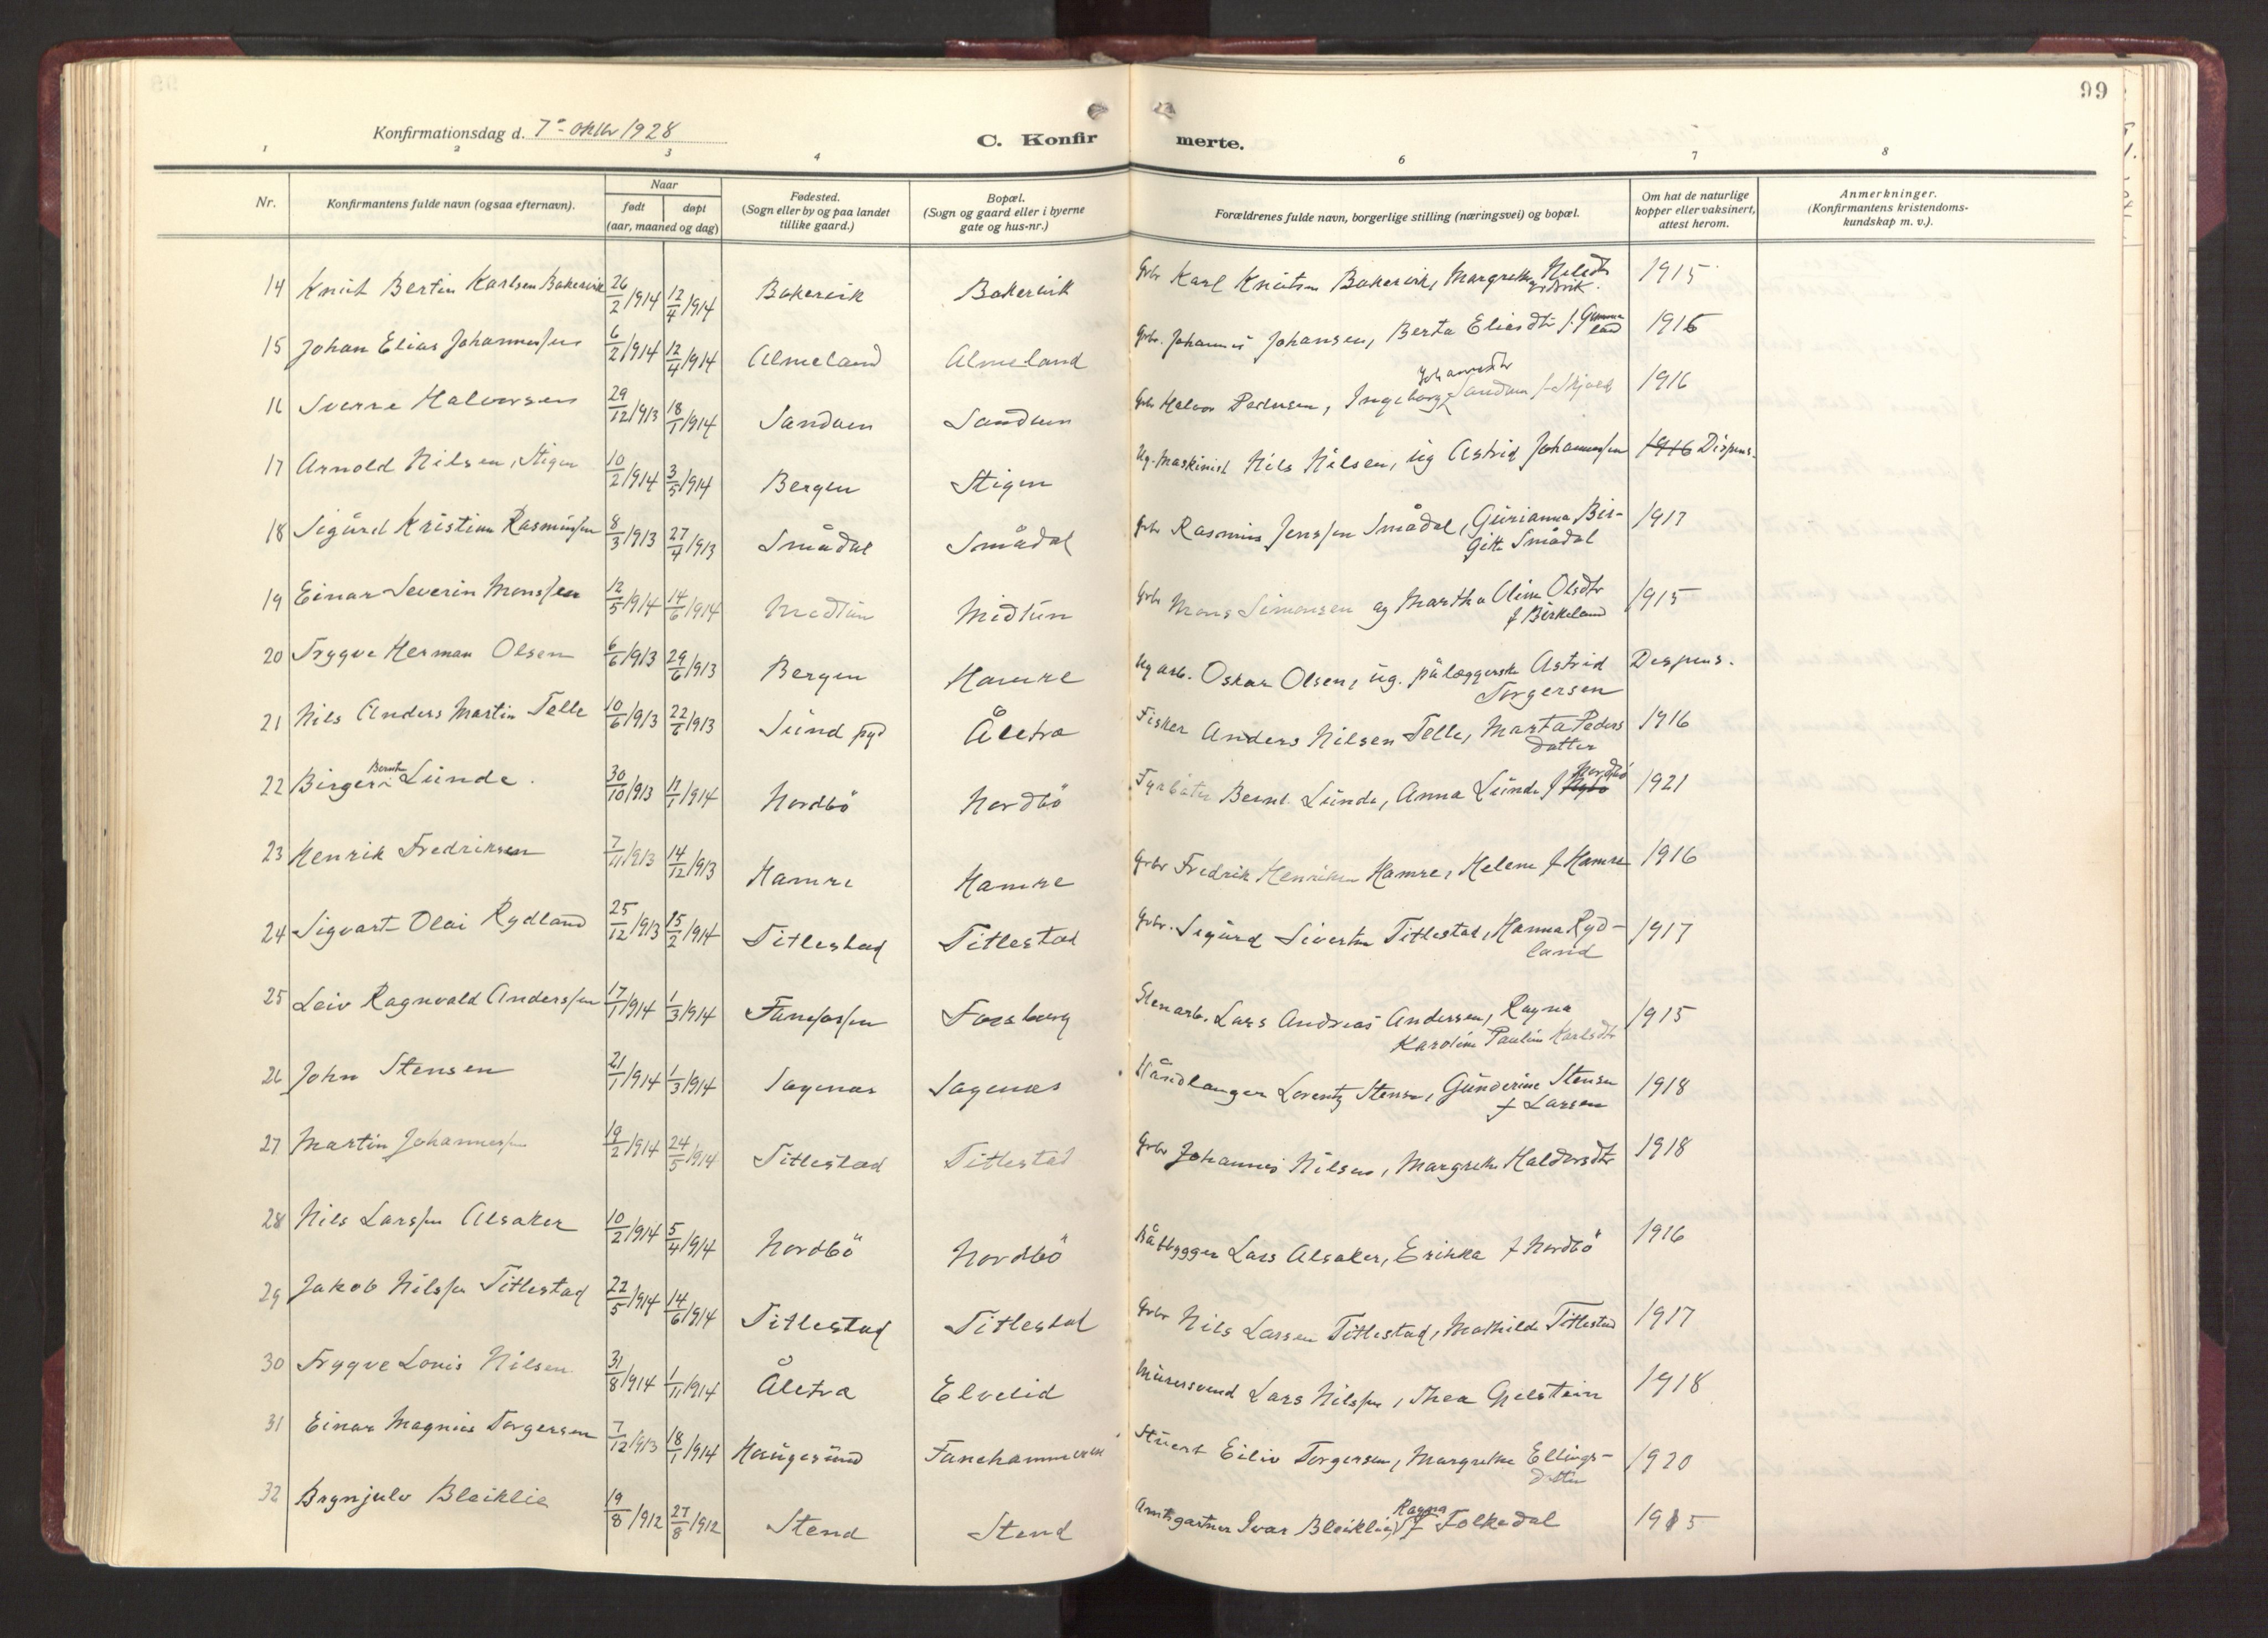 99
Konfirmationsdag d. 7de oktbr 1928
C. Konfirmerte.
1 2 3 4 6 7 8
Nr.
Konfirmantens fulde navn (ogsaa efternavn).
Naar
født
døpt
(aar, maaned og dag)
Fødested.
(Sogn eller by og paa landet
tillike gaard.)
Bopæl.
(Sogn og gaard eller i byerne
gate og hus-nr.)
Forældrenes fulde navn, borgerlige stilling (næringsvei) og bopæl.
Om hat de naturlige
kopper eller vaksinert,
attest herom.
Anmerkninger.
(Konfirmantens kristendoms-
kundskap m. v.).
14 Knut Bertin Karlsen Bakervik 26/2/1914 12/4/1914 Bakervik Bakervik Gbr Karl Knutsen Bakervik, Margrethe Nilsdtr 1915
15 Johan Elias Johannessen 6/2/1914 12/4/1914 Almeland Almeland Gbr. Johannes Johansen, Berta Eliasdtr f. Gumme
land 1916
16 Sverre Halvorsen 29/12/1913 18/1/1914 Sandven Sandven Gbr Halvor Pedersen, Ingeborg Johannesdtr Sandven f. Skjold 1916
17 Arnold Nilsen, Stigen 10/2/1914 3/5/1914 Bergen Stigen Ug. Maskinist Nils Nilsen, ug Astrid Johannessen 1916 Dispens.
18 Sigurd Kristian Rasmussen 8/3/1913 27/4/1913 Smådal Smådal Gbr Rasmus Jenssen Smådal, Gurianna Bir-
gitte Smådal 1917
19 Einar Severin Monssen 12/5/1914 14/6/1914 Midtun Midtun Gbr Mons Simonsen og Martha Oline Olsdtr
f Birkeland 1915
20 Trygve Herman Olsen 6/6/1913 29/6/1913 Bergen Hamre Ug arb. Oskar Olsen, ug. pålæggerske Astrid
Torgersen Dispens.
21 Nils Anders Martin Telle 10/6/1913 22/6/1913 Sund pgd Åletra Fisker Anders Nilsen Telle, Marta Peders
datter 1916
22 Birger Bernt Lunde. 30/10/1913 11/1/1914 Nordbö Nordbö Fyrbøter Bernt Lunde, Anna Lunde f Nordbö 1921
23 Henrik Fredriksen 7/11/1913 14/12/1913 Hamre Hamre Gbr Fredrik Henriksen Hamre, Helene f Hamre 1916
24 Sigvart Olai Rydland 25/12/1913 15/2/1914 Titlestad Titlestad Gbr. Sigurd Sivertsen Titlestad, Hanna Ryd-
land 1917
25 Leiv Ragnvald Anderssen 17/1/1914 1/3/1914 Fanefossen Fossberg Stenarb. Lars Andreas Andersen, Ragna
Karoline Pauline Karlsdtr 1915
26 John Stensen 21/1/1914 1/3/1914 Sagenes Sagenes Håndlanger Lorentz Stensen, Gunderine Stensen
f Larsen 1918
27 Martin Johannessen 19/2/1914 24/5/1914 Titlestad Titlestad Gbr Johannes Nilsen, Margrethe Haldorsdtr 1918
28 Nils Larssen Alsaker 10/2/1914 5/4/1914 Nordbö Nordbö Båtbygger Lars Alsaker, Erikka f Nordbö 1916
29 Jakob Nilssen Titlestad 22/5/1914 14/6/1914 Titlestad Titlestad Gbr Nils Larsen Titlestad, Mathilde Titlestad 1917
30 Trygve Louis Nilsen 31/8/1914 1/11/1914 Åletra Elvelid Murersvend Lars Nilssen, Thea Gjelstein 1918
31 Einar Magnus Torgersen 7/12/1913 18/1/1914 Haugesund Fanehammeren Stuert Eiliv Torgersen, Margrethe Ellings-
datter 1920
32 Brynjulv Bleiklie 19/8/1912 27/8/1912 Stend Stend Amtsgartner Ivar Bleiklie, Ragna f Folkedal 1915